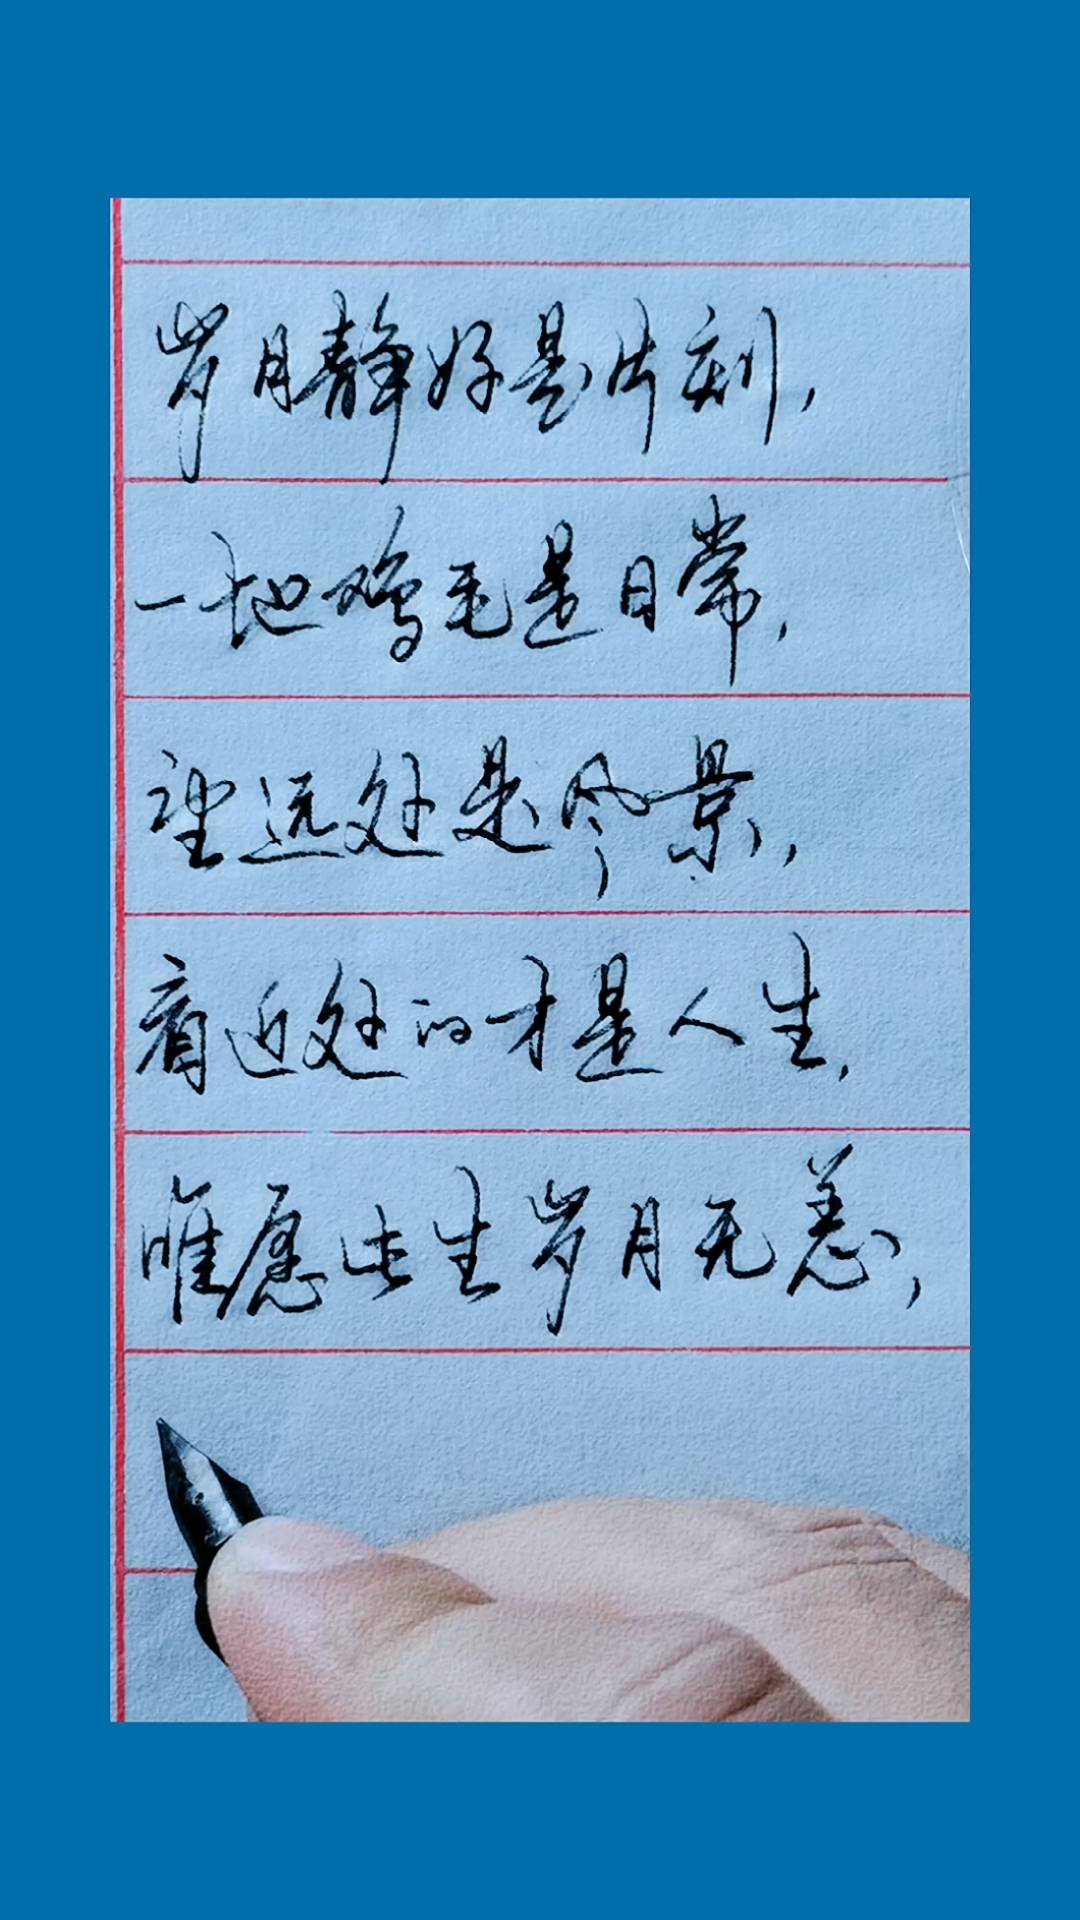 岁月静好是片刻，
一地鸡毛是日常，
望远处是风景，
看近处的才是人生，
唯愿此生岁月无恙，